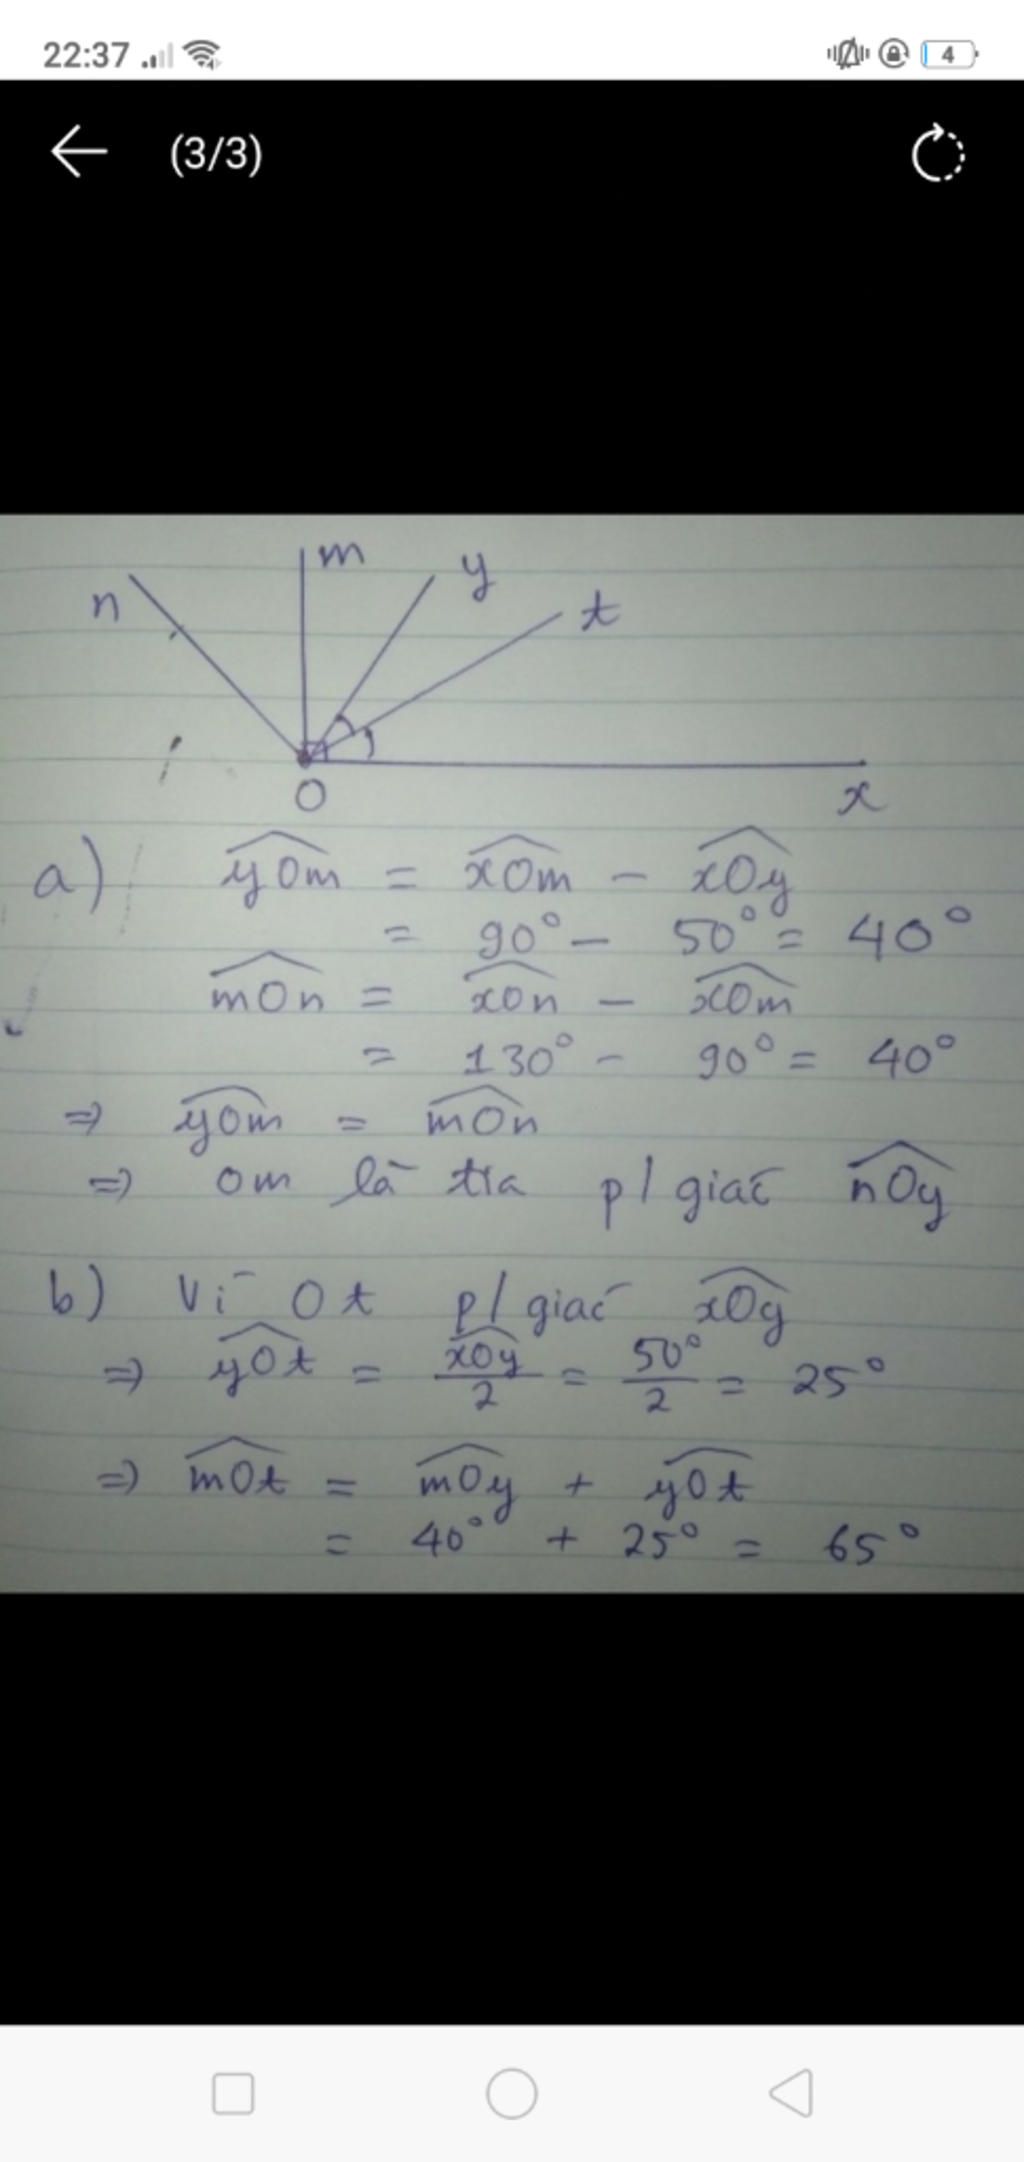 22:37
4
(3/3)
n m y t
O x
a) yOm = xOm - xOy
= 90° - 50° = 40°
mOn = xOn - xOm
= 130° - 90° = 40°
=> yOm = mOn
=> Om là tia p/giác nOy
b) Vì Ot p/giác xOy
=> yOt = xOy/2 = 50°/2 = 25°
=> mOt = mOy + yOt
= 40° + 25° = 65°